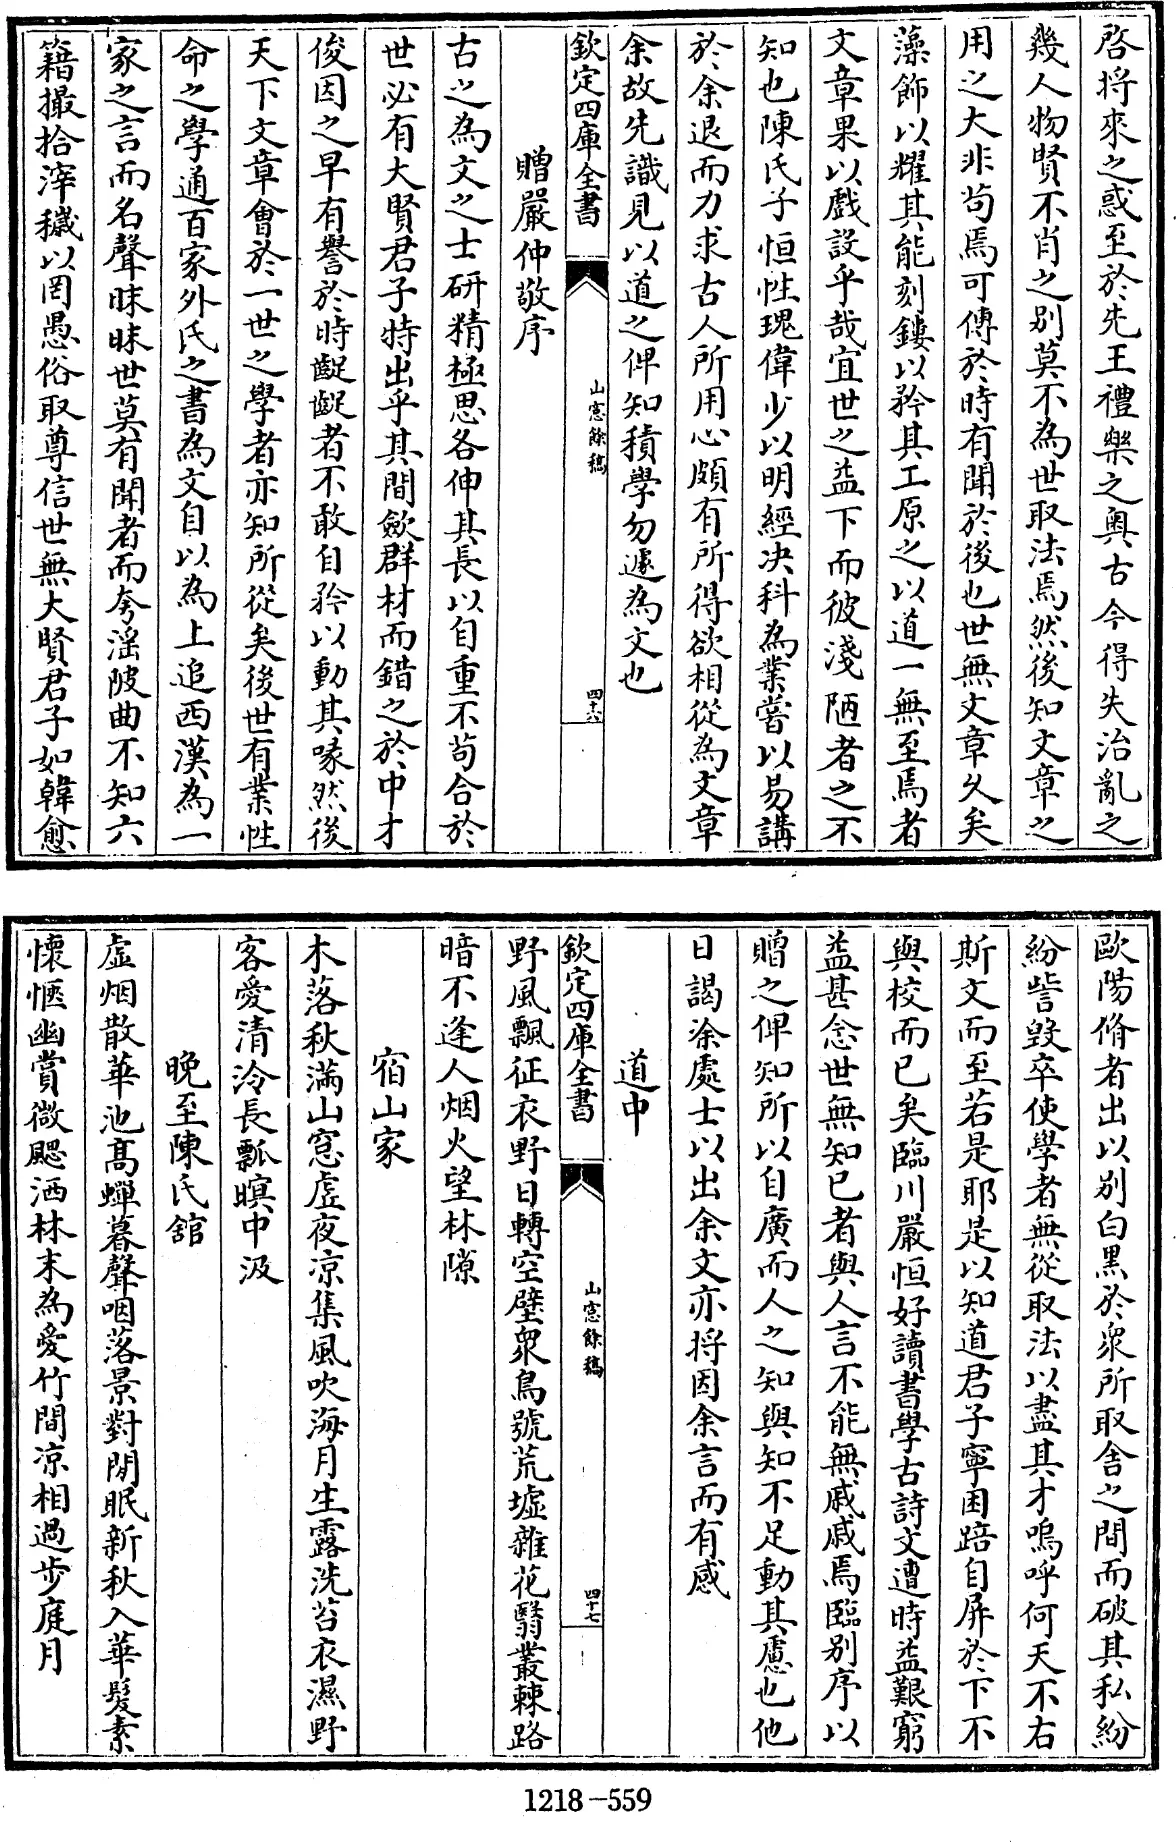 啓將來之惑至於先王禮樂之奥古今得失治亂之
幾人物賢不肖之别莫不為世取法焉然後知文章之
用之大非茍焉可傳於時有聞於後也世無文章久矣
藻飾以耀其能刻鏤以矜其工原之以道一無至焉者
文章果以戲設乎哉宜世之益下而彼淺陋者之不
知也陳氏子恒性瑰偉少以明經决科為業嘗以易講
於余退而力求古人所用心頗有所得欲相從為文章
余故先識見以道之俾知積學勿遽為文也
欽定四庫全書
山窓餘稿
四十六
贈嚴仲敬序
古之為文之士研精極思各伸其長以自重不茍合於
世必有大賢君子特出乎其間歛群材而錯之於中才
俊因之早有譽於時齪齪者不敢自矜以動其喙然後
天下文章會於一世之學者亦知所從矣後世有業性
命之學通百家外氏之書為文自以為上追西漢為一
家之言而名聲昧昧世莫有聞者而夸滛陂曲不知六
籍撮拾滓穢以罔愚俗取尊信世無大賢君子如韓愈
歐陽脩者出以别白黒於衆所取舍之間而破其私紛
紛訾毀卒使學者無從取法以盡其才嗚呼何天不右
斯文而至若是耶是以知道君子寧困踣自屏於下不
與校而已矣臨川嚴恒好讀書學古詩文遭時益艱窮
益甚念世無知已者與人言不能無戚戚焉臨别序以
贈之俾知所以自廣而人之知與知不足動其慮也他
日謁涂處士以出余文亦将因余言而有感
道中
欽定四庫全書
山窓餘稿
四十七
野風飄征衣野日轉空壁衆鳥號荒墟雜花翳叢棘路
暗不逢人烟火望林隙
宿山家
木落秋滿山窓虚夜凉集風吹海月生露洗苔衣濕野
客愛清泠長瓢暝中汲
晚至陳氏舘
虚烟散華池髙蟬暮聲咽落景對閒眠新秋入華髮素
懐惬幽賞微颸洒林末為愛竹間凉相過步庭月
1218-559